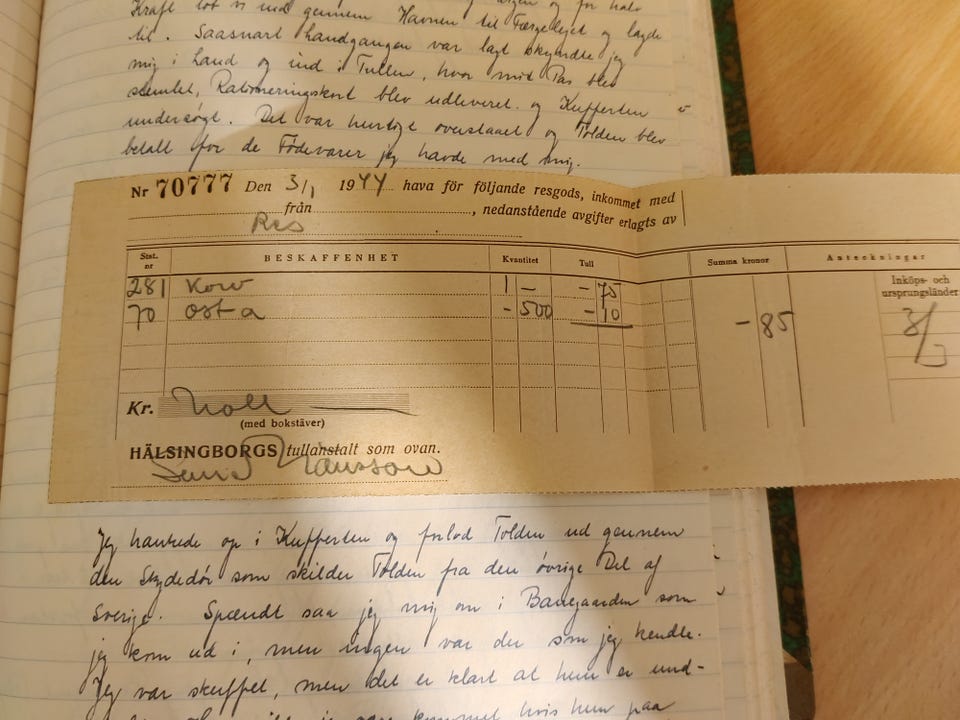 Kraft lob vi ind gennem Havnen til Færgelejet og lagde
til. Saasnart Landgangen var lagt skyndte jeg
mig i Land og ind i Tullen, hvor mit Pas blev
stemlet, Rationeringskort blev udleveret og Kufferten
undersøgt. Det var hurtigt overstaaet og Tolden blev
betalt for de Fødevarer jeg havde med mig.
Nr 70777 Den 3/1 1944 hava för följande resgods, inkommet med
Res från , nedanstående avgifter erlagts av
Stat. nr BESKAFFENHET Kvantitet Tull Summa kronor Anteckningar
Inköps- och ursprungsländer
281 Korv 1 – – 75
70 Ost a - 500 – 10 – 85 3/
Kr. Noll
(med bokstäver)
HÄLSINGBORGS tullanstalt som ovan.
Jönsson
Jeg hankede op i Kufferten og forlod Tolden ud gennem
den Skydedør som skilder Tolden fra den øvrige Del af
Sverige. Spændt saa jeg mig om i Banegaarden som
jeg kom ud i, men ingen var der som jeg kendte.
Jeg var skuffet, men det er klart at hun er und-
kommet hvis hun paa